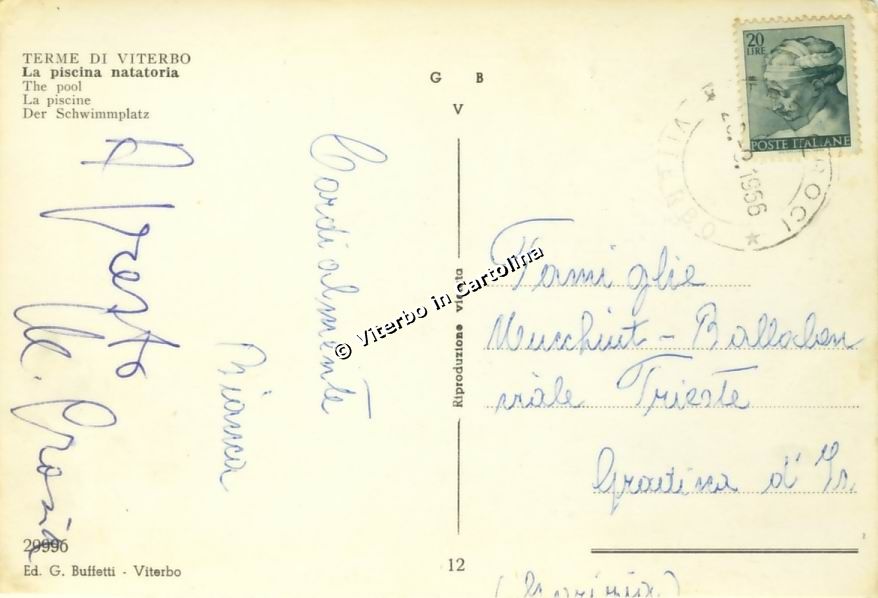 TERME DI VITERBO
La piscina natatoria
The pool
La piscine
Der Schwimmplatz
G B
V
20
LIRE
POSTE ITALIANE
1966
A presto
Cordialmente
Bianca
© Viterbo in Cartolina
Riproduzione vietata
Famiglie
viale Trieste
Gradisca d'Is.
(Gorizia)
29996
Ed. G. Buffetti - Viterbo
12